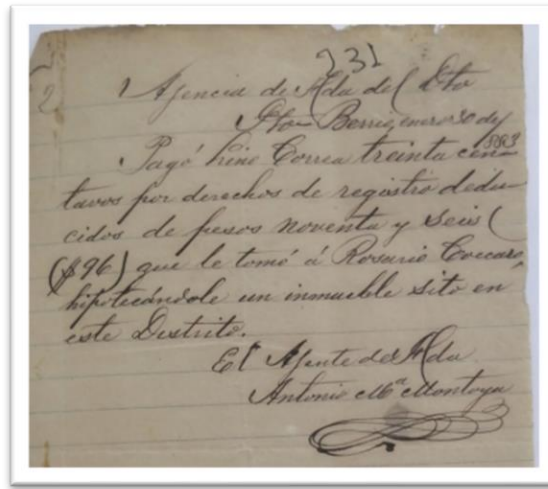 231
2 Agencia de Hda del Dto
Pto Berrio, enero 30 de 1883
Pagó Lino Correa treinta cen-
tavos por derechos de registro dedu-
cidos de pesos noventa y seis (
($96) que le tomó á Rosario
hipotecándole un inmueble sito en
este Distrito.
El Agente de Hda
Antonio Ma Montoya